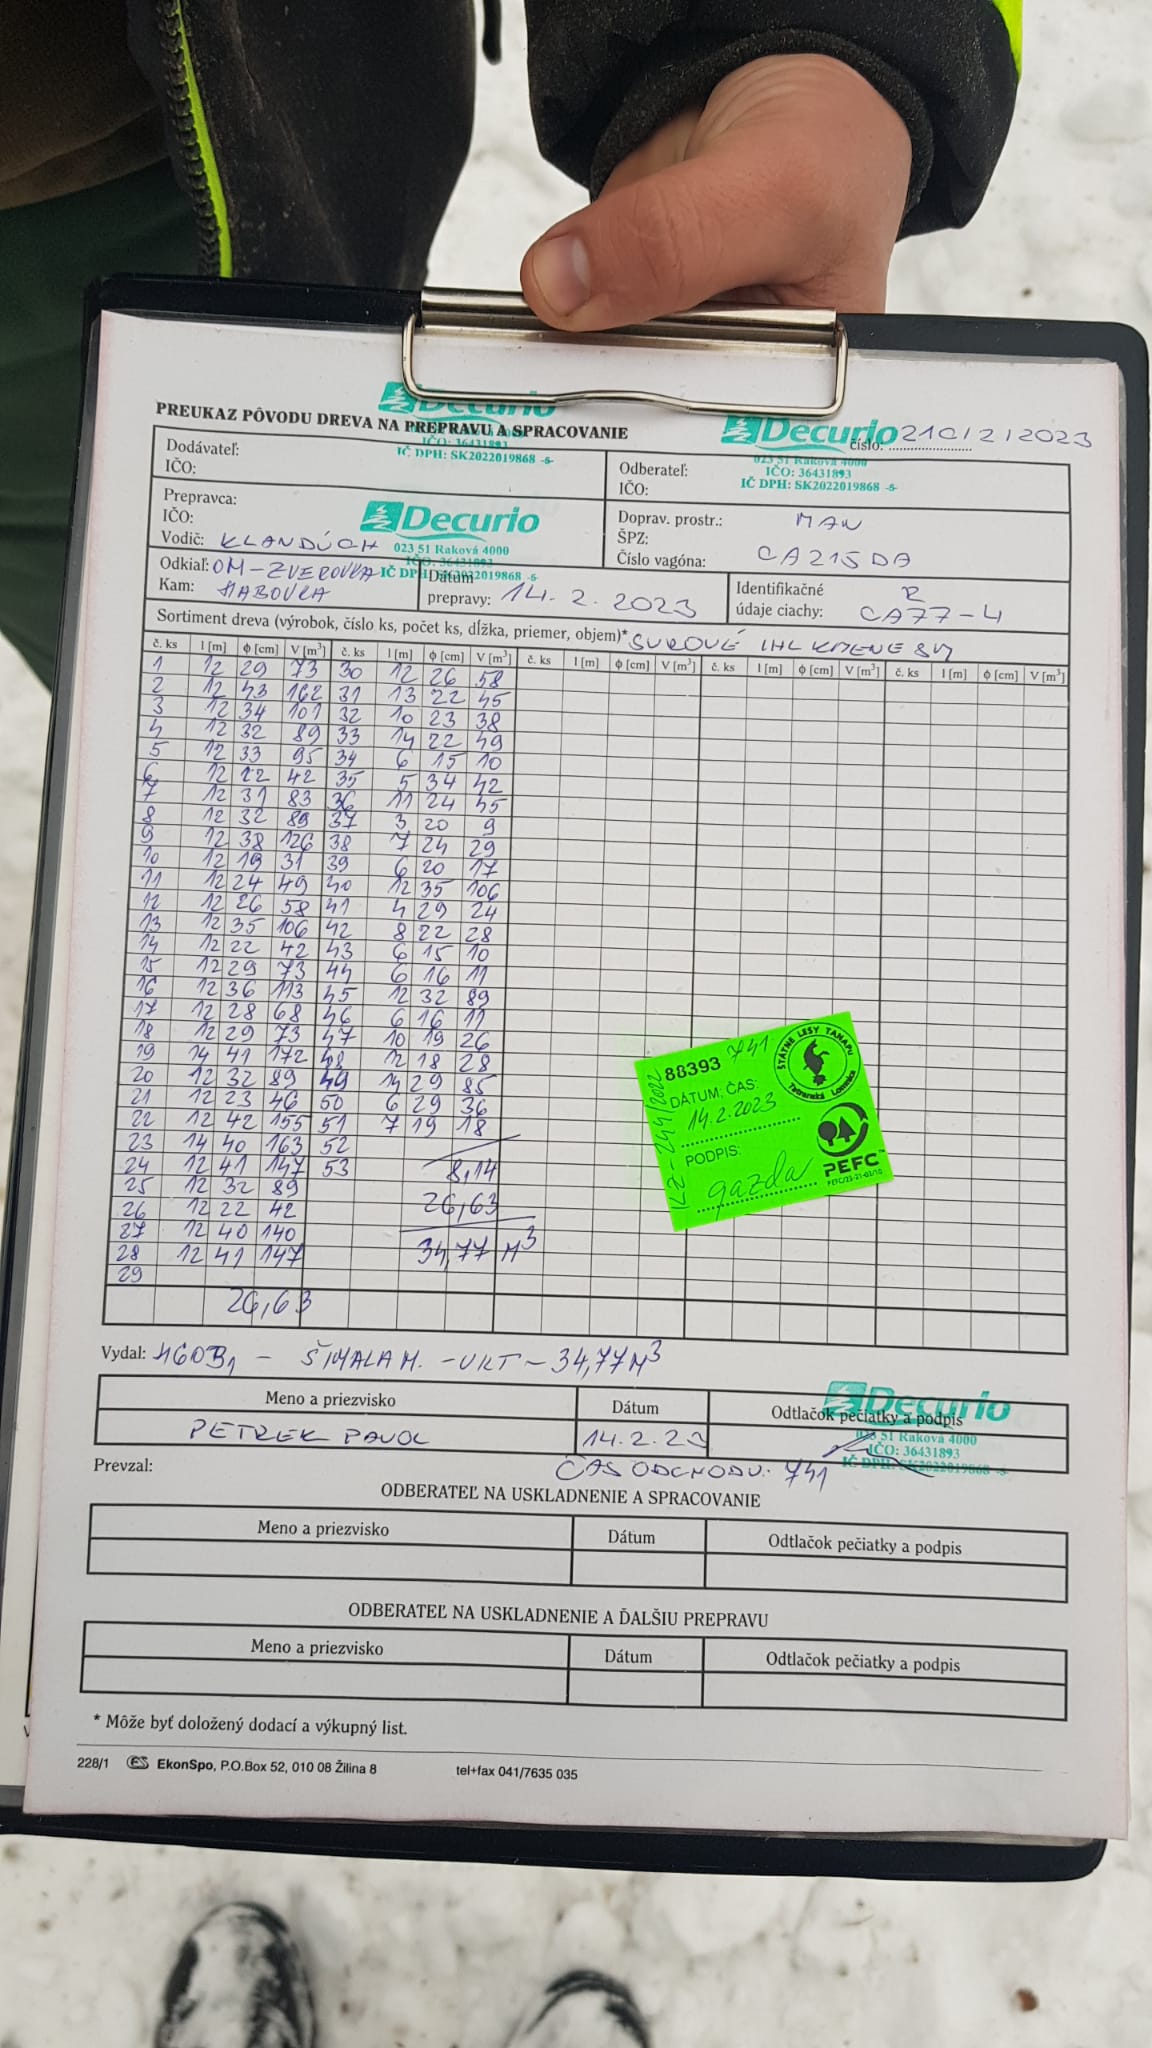 Decurio
PREUKAZ PÔVODU DREVA NA PREPRAVU A SPRACOVANIE
IČO: 36431893
IČ DPH: SK2022019868 -5-
Decurio
číslo: 210/2/2023
023 51 Raková 4000
IČO: 36431893
IČ DPH: SK2022019868 -5-
Dodávateľ:
IČO:
Odberateľ:
IČO:
Prepravca:
IČO:
Vodič: KLANDÚCH
Decurio
023 51 Raková 4000
IČO: 36431893
IČ DPH: SK2022019868 -5-
Doprav. prostr.: MAN
ŠPZ:
Číslo vagóna: CA215DA
Odkiaľ: OM-ZVEROVKA
Kam: HABOVKA
Dátum
prepravy: 14. 2. 2023
Identifikačné R
údaje ciachy: CA77-4
Sortiment dreva (výrobok, číslo ks, počet ks, dĺžka, priemer, objem)* SUROVÉ IHL KMENE SM
č. ks l [m] ϕ [cm] V [m³] č. ks l [m] ϕ [cm] V [m³] č. ks l [m] ϕ [cm] V [m³] č. ks l [m] ϕ [cm] V [m³] č. ks l [m] ϕ [cm] V [m³]
1 12 29 73 30 12 26 58
2 12 43 162 31 13 22 45
3 12 34 101 32 10 23 38
4 12 32 89 33 14 22 49
5 12 33 95 34 6 15 10
6 12 22 42 35 5 34 42
7 12 31 83 36 11 24 45
8 12 32 89 37 3 20 9
9 12 38 126 38 7 24 29
10 12 19 31 39 6 20 17
11 12 24 49 40 12 35 106
12 12 26 58 41 4 29 24
13 12 35 106 42 8 22 28
14 12 22 42 43 6 15 10
15 12 29 73 44 6 16 11
16 12 36 113 45 12 32 89
17 12 28 68 46 6 16 11
18 12 29 73 47 10 19 26
19 14 41 172 48 12 18 28
20 12 32 89 49 14 29 85
21 12 23 46 50 6 29 36
22 12 42 155 51 7 19 18
23 14 40 163 52
24 12 41 147 53 8,14
25 12 32 89
26 12 22 42 26,63
27 12 40 140
28 12 41 147 34,77 M³
29
26,63
88393 741
DÁTUM, ČAS:
14.2.2023
PODPIS:
gazda
ŠTÁTNE LESY TANAPU
Tatranská Lomnica
PEFC™
Vydal: 460B1 - ŠIMALA M. -VLT- 34,77M³
Meno a priezvisko Dátum Odtlačok pečiatky a podpis
PETREK PAVOL 14.2.23
Decurio
023 51 Raková 4000
IČO: 36431893
IČ DPH: SK2022019868 -5-
Prevzal: ČAS ODCHODU: 741
ODBERATEĽ NA USKLADNENIE A SPRACOVANIE
Meno a priezvisko Dátum Odtlačok pečiatky a podpis
ODBERATEĽ NA USKLADNENIE A ĎALŠIU PREPRAVU
Meno a priezvisko Dátum Odtlačok pečiatky a podpis
* Môže byť doložený dodací a výkupný list.
228/1 ES EkonSpo, P.O.Box 52, 010 08 Žilina 8 tel+fax 041/7635 035